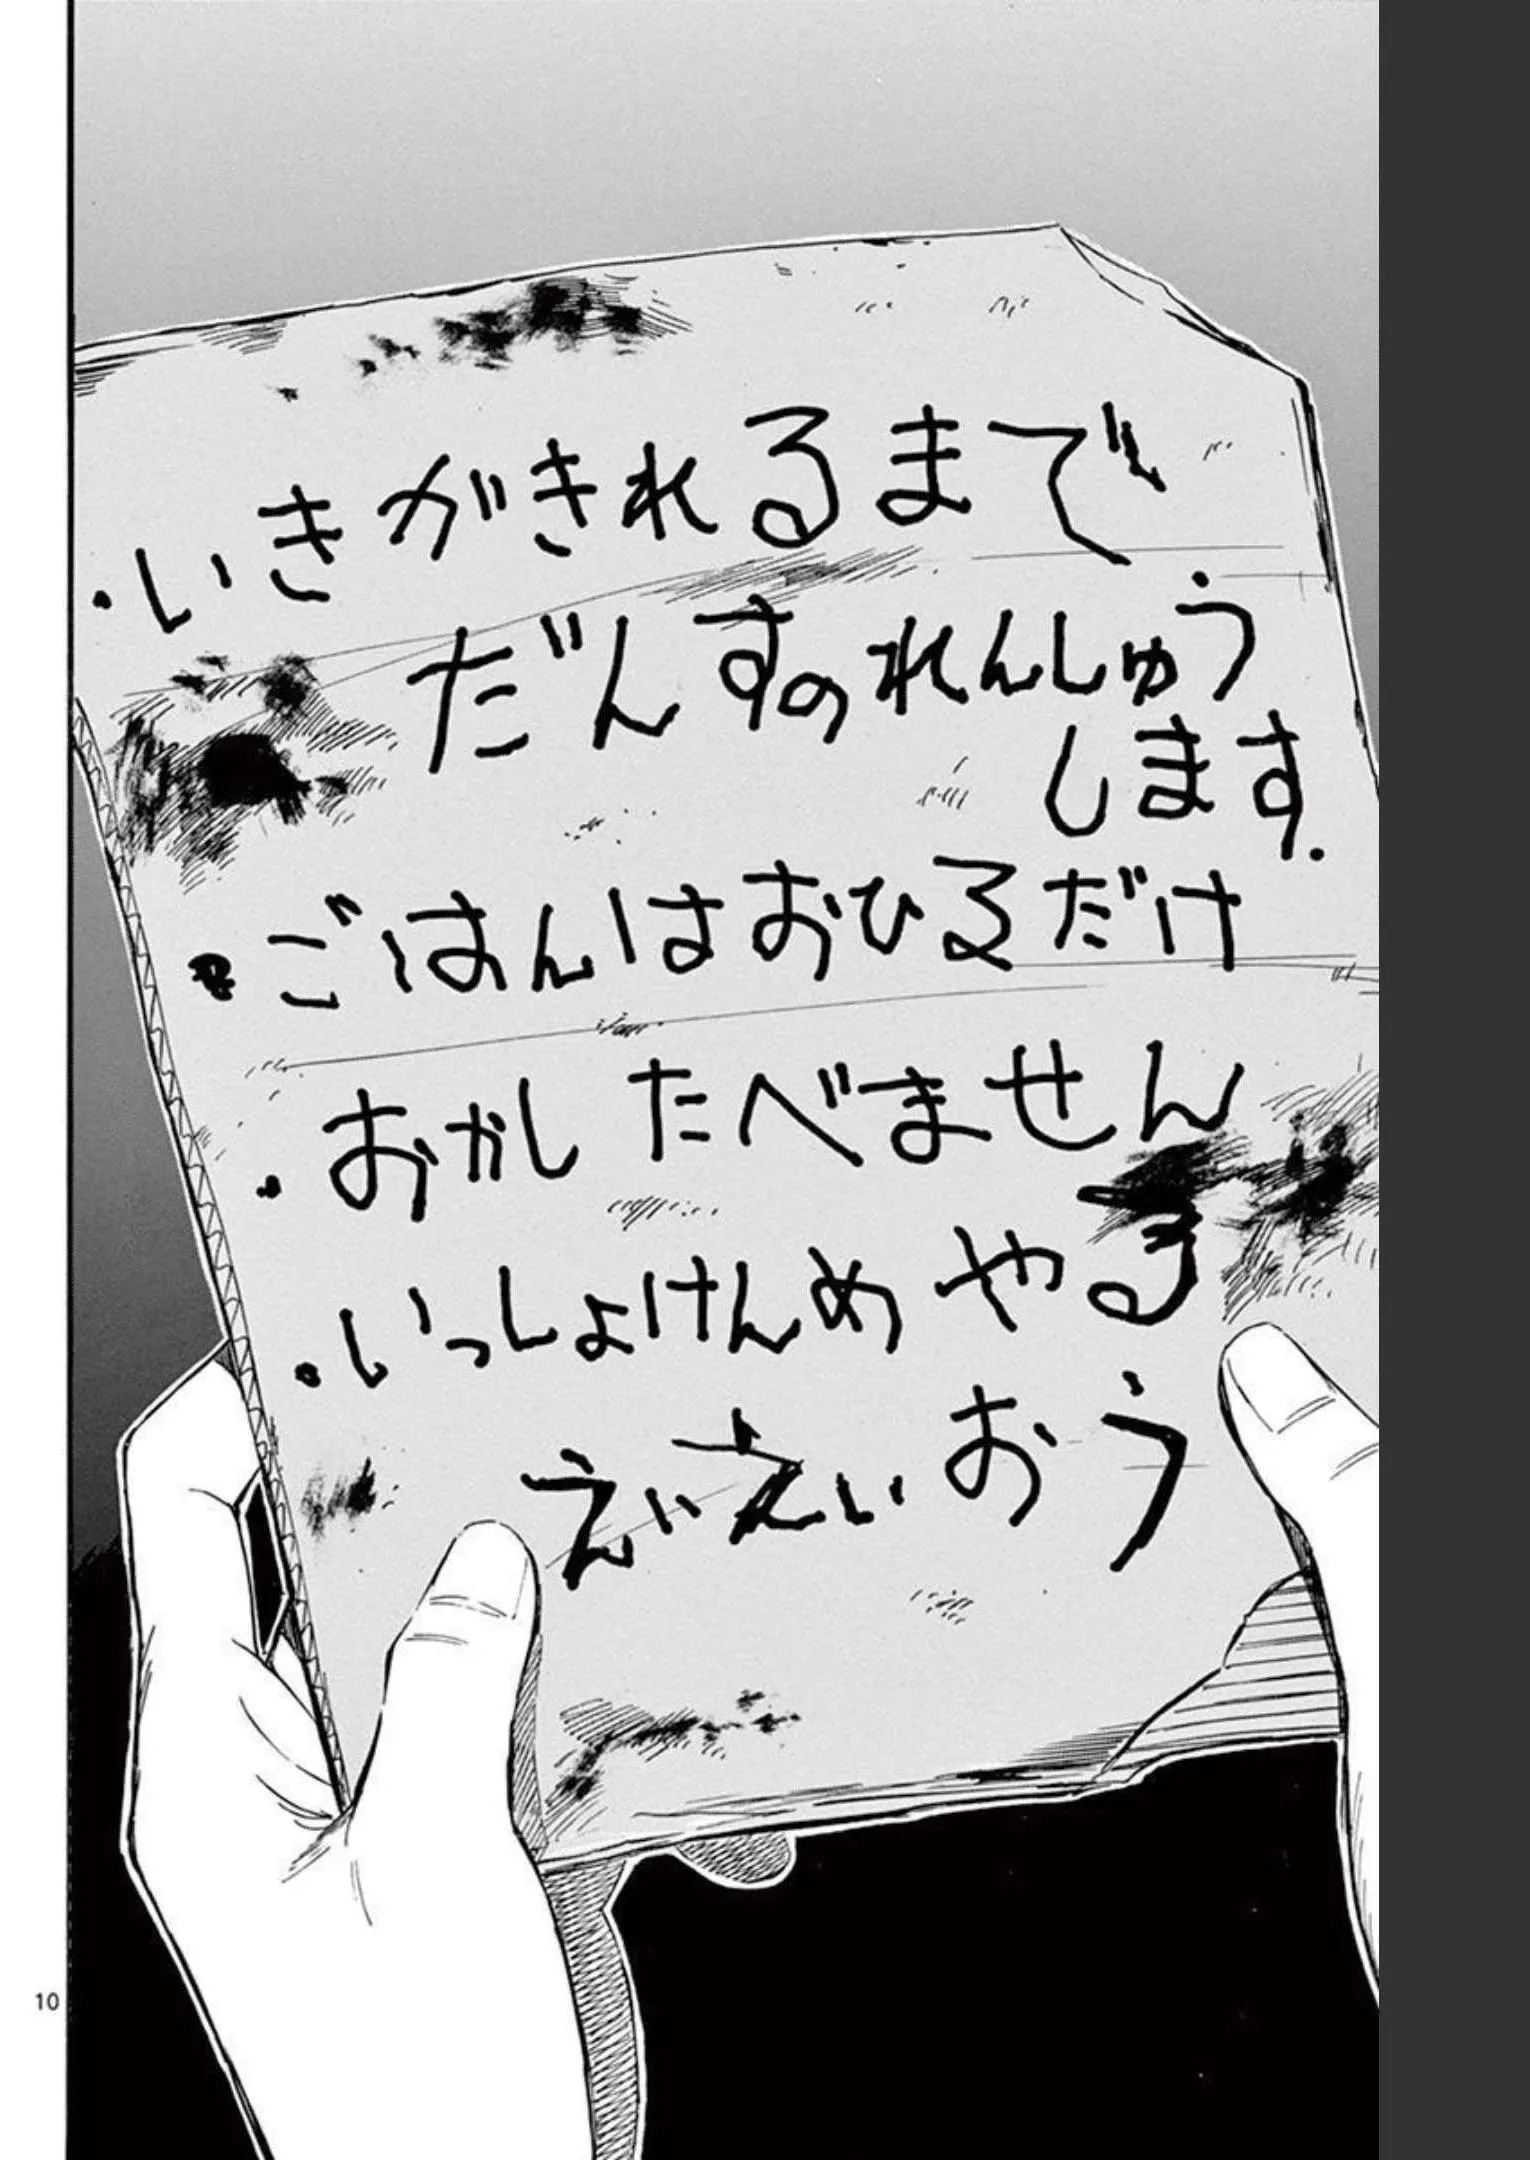 ・いきがきれるまで
だんすのれんしゅう
します.
・ごはんはおひるだけ
・おかし たべません
・いっしょけんめ やる
えいえいおう
10